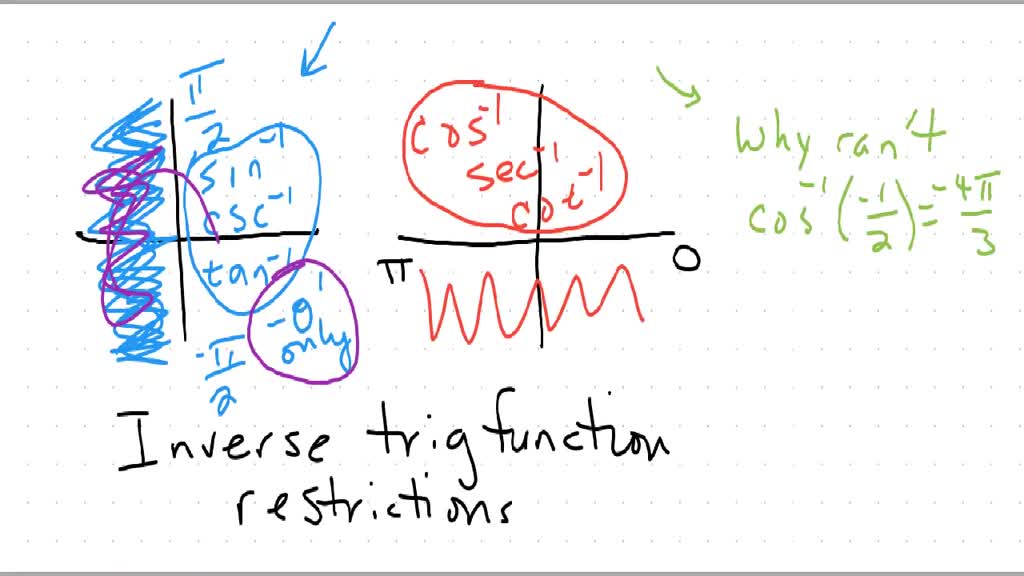 π/2
sin⁻¹
csc⁻¹
tan⁻¹
-π/2
-θ
only
cos⁻¹
sec⁻¹
cot⁻¹
π
0
Why can't
cos⁻¹(-1/2) = -4π/3
Inverse trig function
restrictions